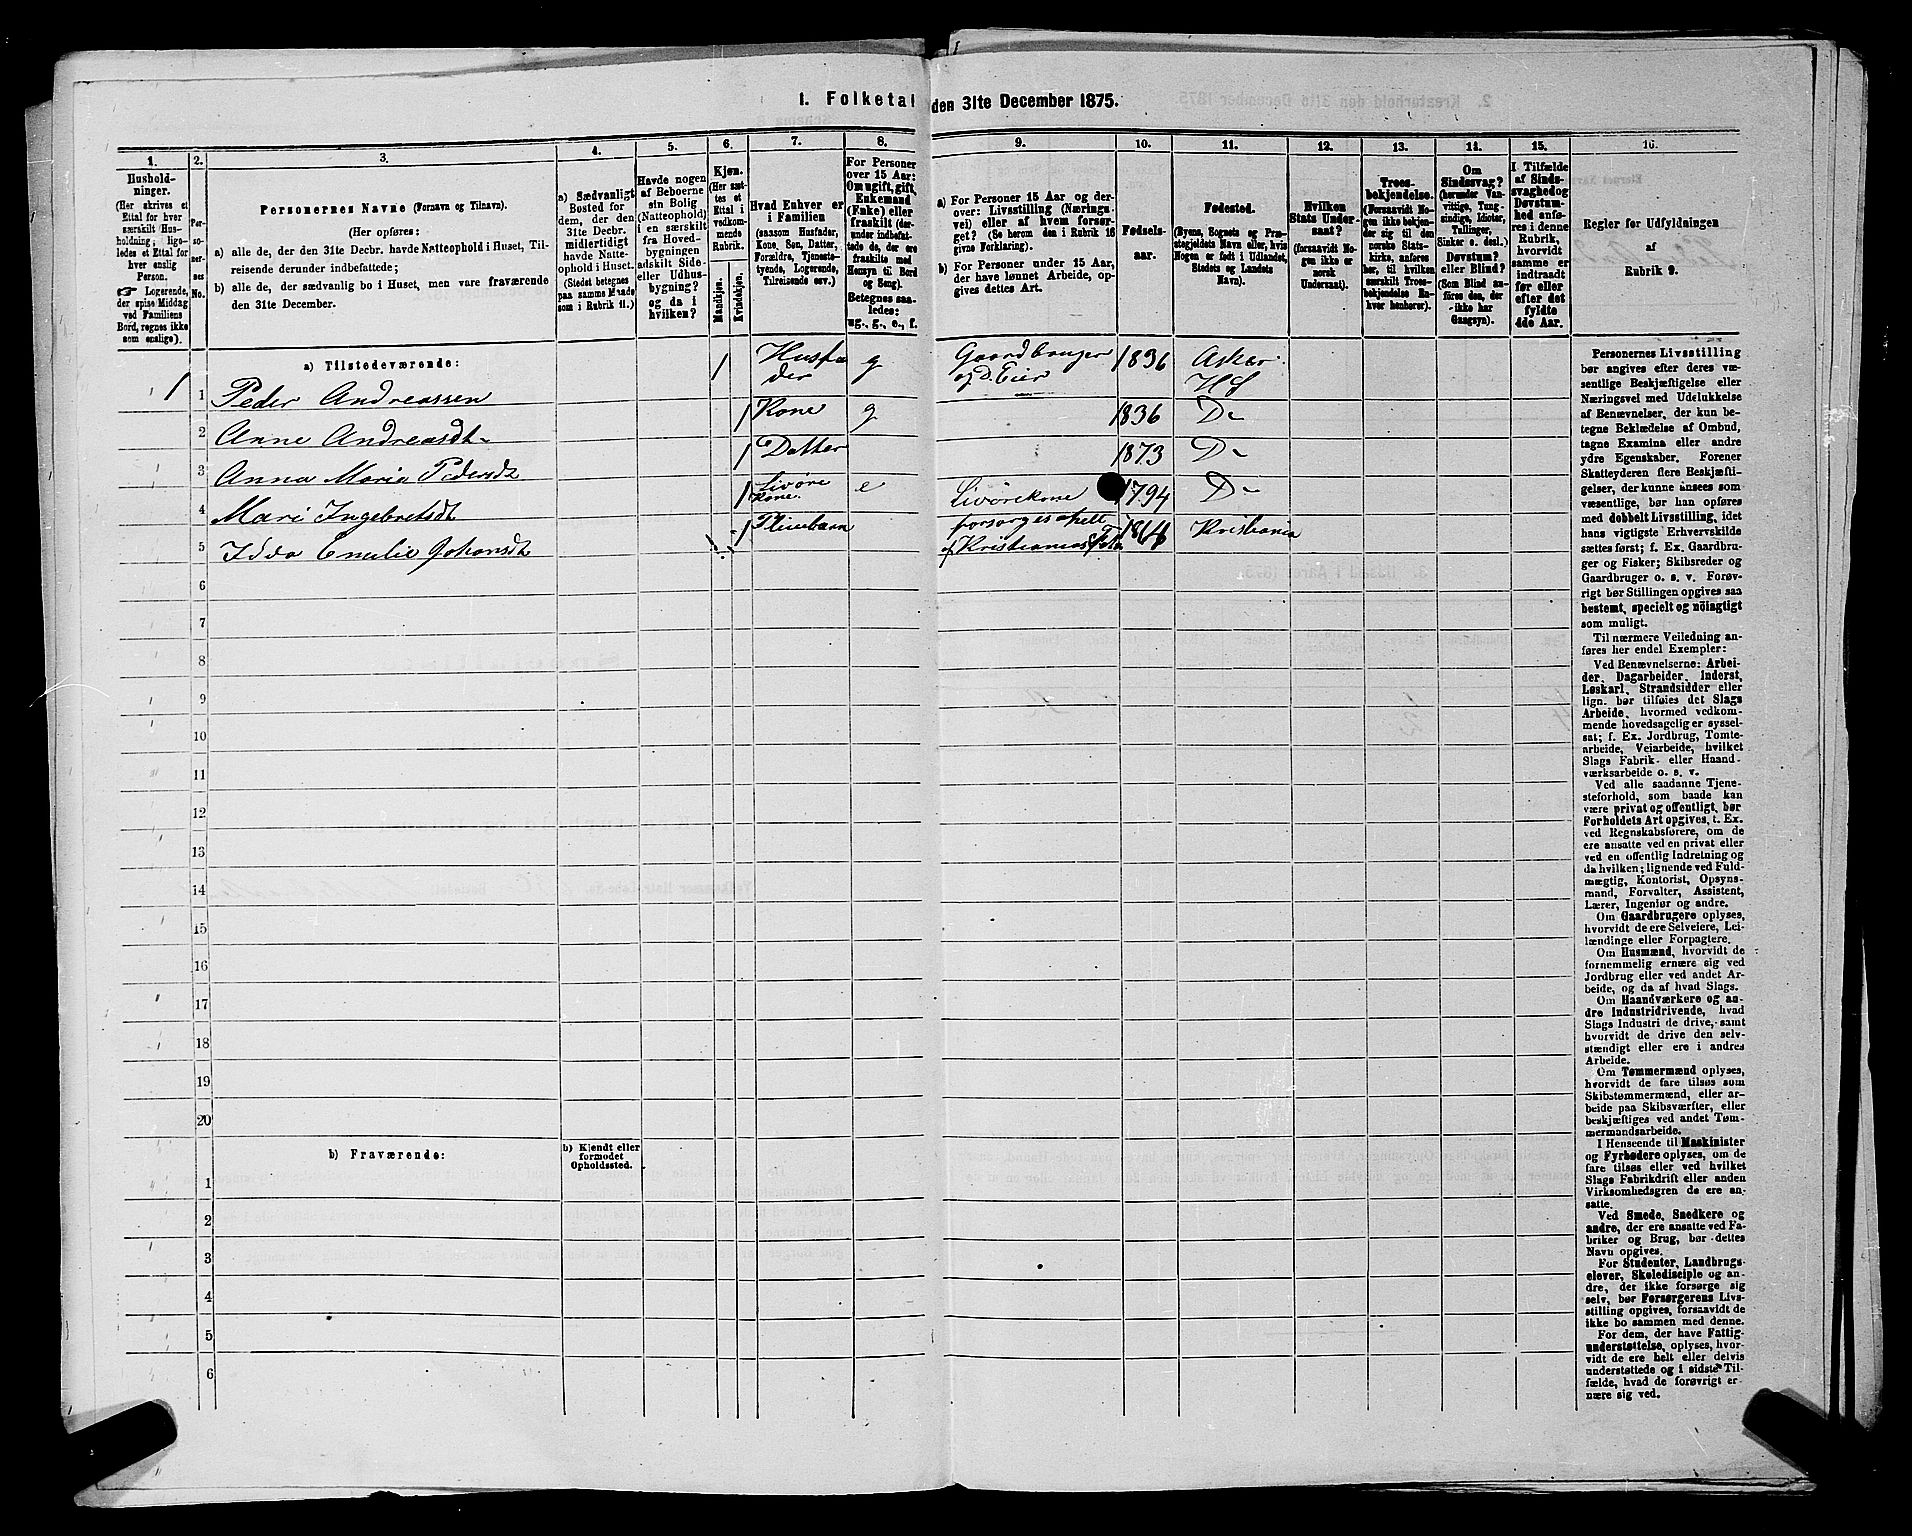 1. Folketal den 31te December 1875.
1.
Hushold-
ninger.
(Her skrives et
Ettal for hver
særskilt Hus-
holdning; lige-
ledes et Ettal for
hver enslig
Person.
☞ Logerende,
der spise Middag
ved Familiens
Bord, regnes ikke
som enslige).
2.
Per-
so-
ner-
nes
No.
3.
Personernes Navne (Fornavn og Tilnavn).
(Her opføres:
a) alle de, der den 31te Decbr. havde Natteophold i Huset, Til-
reisende derunder indbefattede;
b) alle de, der sædvanlig bo i Huset, men vare fraværende
den 31te December.
4.
a) Sædvanligt
Bosted for
dem, der den
31te Decbr.
midlertidigt
havde Natte-
ophold i Huset.
(Stedet betegnes
paa samme Maade
som i Rubrik 11.)
5.
Havde nogen
af Beboerne
sin Bolig
(Natteophold)
i en særskilt
fra Hoved-
bygningen
adskilt Side-
eller Udhus-
bygning?
og da i
hvilken?
6.
Kjøn.
(Her sæt-
tes et
Ettal i
vedkom-
mende
Rubrik.
Mandkjøn.
Kvindekjøn.
7.
Hvad Enhver er
i Familien
(saasom Husfader,
Kone, Søn, Datter,
Forældre, Tjeneste-
tyende, Logerende,
Tilreisende osv.)
8.
For Personer
over 15 Aar:
Om ugift, gift,
Enkemand
(Enke) eller
fraskilt (der-
under indbefat-
tede de, der ere
fraskilte med
Hensyn til Bord
og Seng).
Betegnes saa-
ledes:
ug., g., e., f.
9.
a) For Personer 15 Aar og der-
over: Livsstilling (Nærings-
vei) eller af hvem forsør-
get? (Se herom den i Rubrik 16
givne Forklaring).
b) For Personer under 15 Aar,
der have lønnet Arbeide, op-
gives dettes Art.
10.
Fødsels-
aar.
11.
Fødested.
(Byens, Sognets og Præ-
stegjeldets Navn eller, hvis
Nogen er født i Udlandet,
Stedets og Landets
Navn).
12.
Hvilken
Stats Under-
saat?
(forsaavidt No-
gen ikke er
norsk
Undersaat).
13.
Troes-
bekjendelse.
(Forsaavidt No-
gen ikke bekjen-
der sig til den
norske Stats-
kirke, anføres
her, til hvilken
særskilt Troes-
bekjendelse En-
hver henhører).
14.
Om
Sindssvag?
(herunder Van-
vittige, Tung-
sindige, Idioter,
Tullinger,
Sinker o. desl.)
Døvstum?
eller Blind?
(Som Blind an-
føres den, der
ikke har
Gangsyn).
15.
I Tilfælde
af Sinds-
svaghed og
Døvstum-
hed anfø-
res i denne
Rubrik,
hvorvidt
samme er
indtraadt
før eller
efter det
fyldte
4de Aar.
16.
Regler for Udfyldningen
af
Rubrik 9.
a) Tilstedeværende:
1 1 Peder Andreassen 1 Husfader g Gaardbruger og D. Eier 1836 Asker HS
2 Anne Andreasdt 1 Kone g 1836 Do
3 Anna Maria Pedersdt 1 Datter 1873 Do
4 Mari Ingebretsdt 1 Livøre Kone e Livørekone 1794 Do
5 Idda Emilie Johansdt 1 Pleiebarn forsørges helt af Kristianias 186 Kristiania
6
7
8
9
10
11
12
13
14
15
16
17
18
19
20
b) Fraværende:
b) Kjendt eller
formodet
Opholdssted.
1
2
3
4
5
6
Personernes Livsstilling
bør angives efter deres væ-
sentlige Beskjæftigelse eller
Næringsvei med Udelukkelse
af Benævnelser, der kun be-
tegne Beklædelse af Ombud,
tagne Examina eller andre
ydre Egenskaber. Forener
Skatteyderen flere Beskjæfti-
gelser, der kunne ansees som
væsentlige, bør han opføres
med dobbelt Livsstilling, idet
hans vigtigste Erhvervskilde
sættes først; f. Ex. Gaardbru-
ger og Fisker; Skibsreder og
Gaardbruger o. s. v. Forøv-
rigt bør Stillingen opgives saa
bestemt, specielt og nöiagtigt
som muligt.
Til nærmere Veiledning an-
føres her endel Exempler:
Ved Benævnelserne: Arbei-
der, Dagarbeider, Inderst,
Løskarl, Strandsidder eller
lign. bør tilføies det Slags
Arbeide, hvormed vedkom-
mende hovedsagelig er syssel-
sat; f. Ex. Jordbrug, Tomte-
arbeide, Veiarbeide, hvilket
Slags Fabrik- eller Haand-
værksarbeide o. s. v.
Ved alle saadanne Tjene-
steforhold, som baade kan
være privat og offentligt, bør
Forholdets Art opgives, t. Ex.
ved Regnskabsførere, om de
ere ansatte ved en privat eller
ved en offentlig Indretning og
da hvilken; lignende ved Fuld-
mægtig, Kontorist, Opsyns-
mand, Forvalter, Assistent,
Lærer, Ingeniør og andre.
Om Gaardbrugere oplyses,
hvorvidt de ere Selveiere, Lei-
lændinge eller Forpagtere.
Om Husmænd, hvorvidt de
fornemmelig ernære sig ved
Jordbrug eller ved andet Ar-
beide, og da af hvad Slags.
Om Haandværkere og an-
dre Industridrivende, hvad
Slags Industri de drive, samt
hvorvidt de drive den selv-
stændigt eller ere i andres
Arbeide.
Om Tømmermænd oplyses,
hvorvidt de fare tilsøs som
Skibstømmermænd, eller ar-
beide paa Skibsværfter, eller
beskjæftiges ved andet Tøm-
mermandsarbeide.
I Henseende til Maskinister
og Fyrbødere oplyses, om de
fare tilsøs eller ved hvilket
Slags Fabrikdrift eller anden
Virksomhedsgren de ere an-
satte.
Ved Smede, Snedkere og
andre, der ere ansatte ved Fa-
briker og Brug, bør dettes
Navn opgives.
For Studenter, Landbrugs-
elever, Skoledisciple og an-
dre, der ikke forsørge sig
selv, bør Forsørgerens Livs-
stilling opgives, forsaavidt de
ikke bo sammen med denne.
For dem, der have Fattig-
understøttelse, oplyses, hvor-
vidt de ere helt eller delvis
understøttede og i sidste Til-
fælde, hvad de forøvrigt er-
nære sig ved.